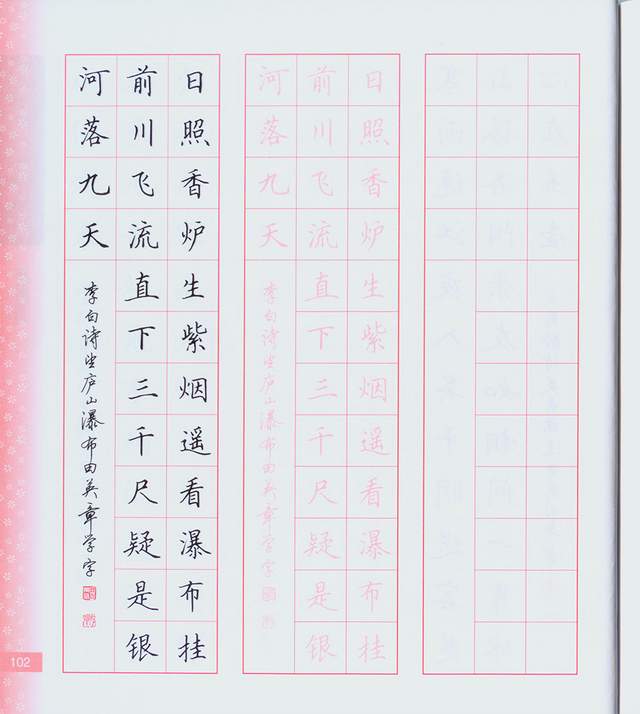 日照香炉生紫烟遥看瀑布挂
前川飞流直下三千尺疑是银
河落九天
李白诗望庐山瀑布田英章学字
日照香炉生紫烟遥看瀑布挂
前川飞流直下三千尺疑是银
河落九天
李白诗望庐山瀑布田英章学字
102